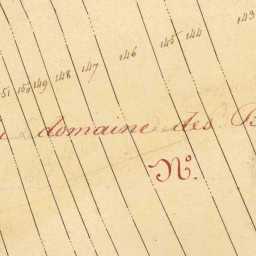 151 150 149 148 147 146 145 144 143
domaine des B
N°.